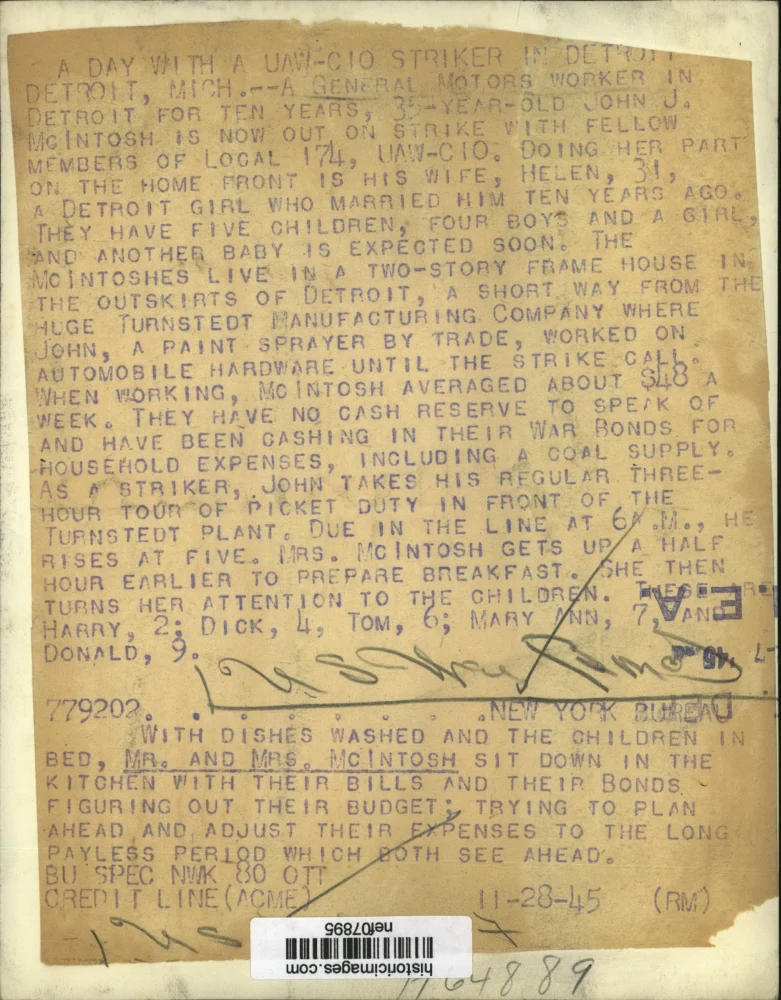 A DAY WITH A UAW-CIO STRIKER IN DETROIT
DETROIT, MICH.--A GENERAL MOTORS WORKER IN
DETROIT FOR TEN YEARS, 35-YEAR-OLD JOHN J.
MCINTOSH IS NOW OUT ON STRIKE WITH FELLOW
MEMBERS OF LOCAL 174, UAW-CIO. DOING HER PART
ON THE HOME FRONT IS HIS WIFE, HELEN, 31,
A DETROIT GIRL WHO MARRIED HIM TEN YEARS AGO.
THEY HAVE FIVE CHILDREN, FOUR BOYS AND A GIRL,
AND ANOTHER BABY IS EXPECTED SOON. THE
MCINTOSHES LIVE IN A TWO-STORY FRAME HOUSE IN
THE OUTSKIRTS OF DETROIT, A SHORT WAY FROM THE
HUGE TURNSTEDT MANUFACTURING COMPANY WHERE
JOHN, A PAINT SPRAYER BY TRADE, WORKED ON
AUTOMOBILE HARDWARE UNTIL THE STRIKE CALL.
WHEN WORKING, MCINTOSH AVERAGED ABOUT $48 A
WEEK. THEY HAVE NO CASH RESERVE TO SPEAK OF
AND HAVE BEEN CASHING IN THEIR WAR BONDS FOR
HOUSEHOLD EXPENSES, INCLUDING A COAL SUPPLY.
AS A STRIKER, JOHN TAKES HIS REGULAR THREE-
HOUR TOUR OF PICKET DUTY IN FRONT OF THE
TURNSTEDT PLANT. DUE IN THE LINE AT 6A.M., HE
RISES AT FIVE. MRS. MCINTOSH GETS UP A HALF
HOUR EARLIER TO PREPARE BREAKFAST. SHE THEN
TURNS HER ATTENTION TO THE CHILDREN. THESE ARE
HARRY, 2; DICK, 4, TOM, 6; MARY ANN, 7, AND
DONALD, 9.
U S War Bonds
779202. . . . . . . . .NEW YORK BUREAU
WITH DISHES WASHED AND THE CHILDREN IN
BED, MR. AND MRS. MCINTOSH SIT DOWN IN THE
KITCHEN WITH THEIR BILLS AND THEIR BONDS
FIGURING OUT THEIR BUDGET; TRYING TO PLAN
AHEAD AND ADJUST THEIR EXPENSES TO THE LONG
PAYLESS PERIOD WHICH BOTH SEE AHEAD.
BU SPEC NWK 80 OTT
CREDIT LINE (ACME) 11-28-45 (RM)
nef07895
historicimages.com
1164889